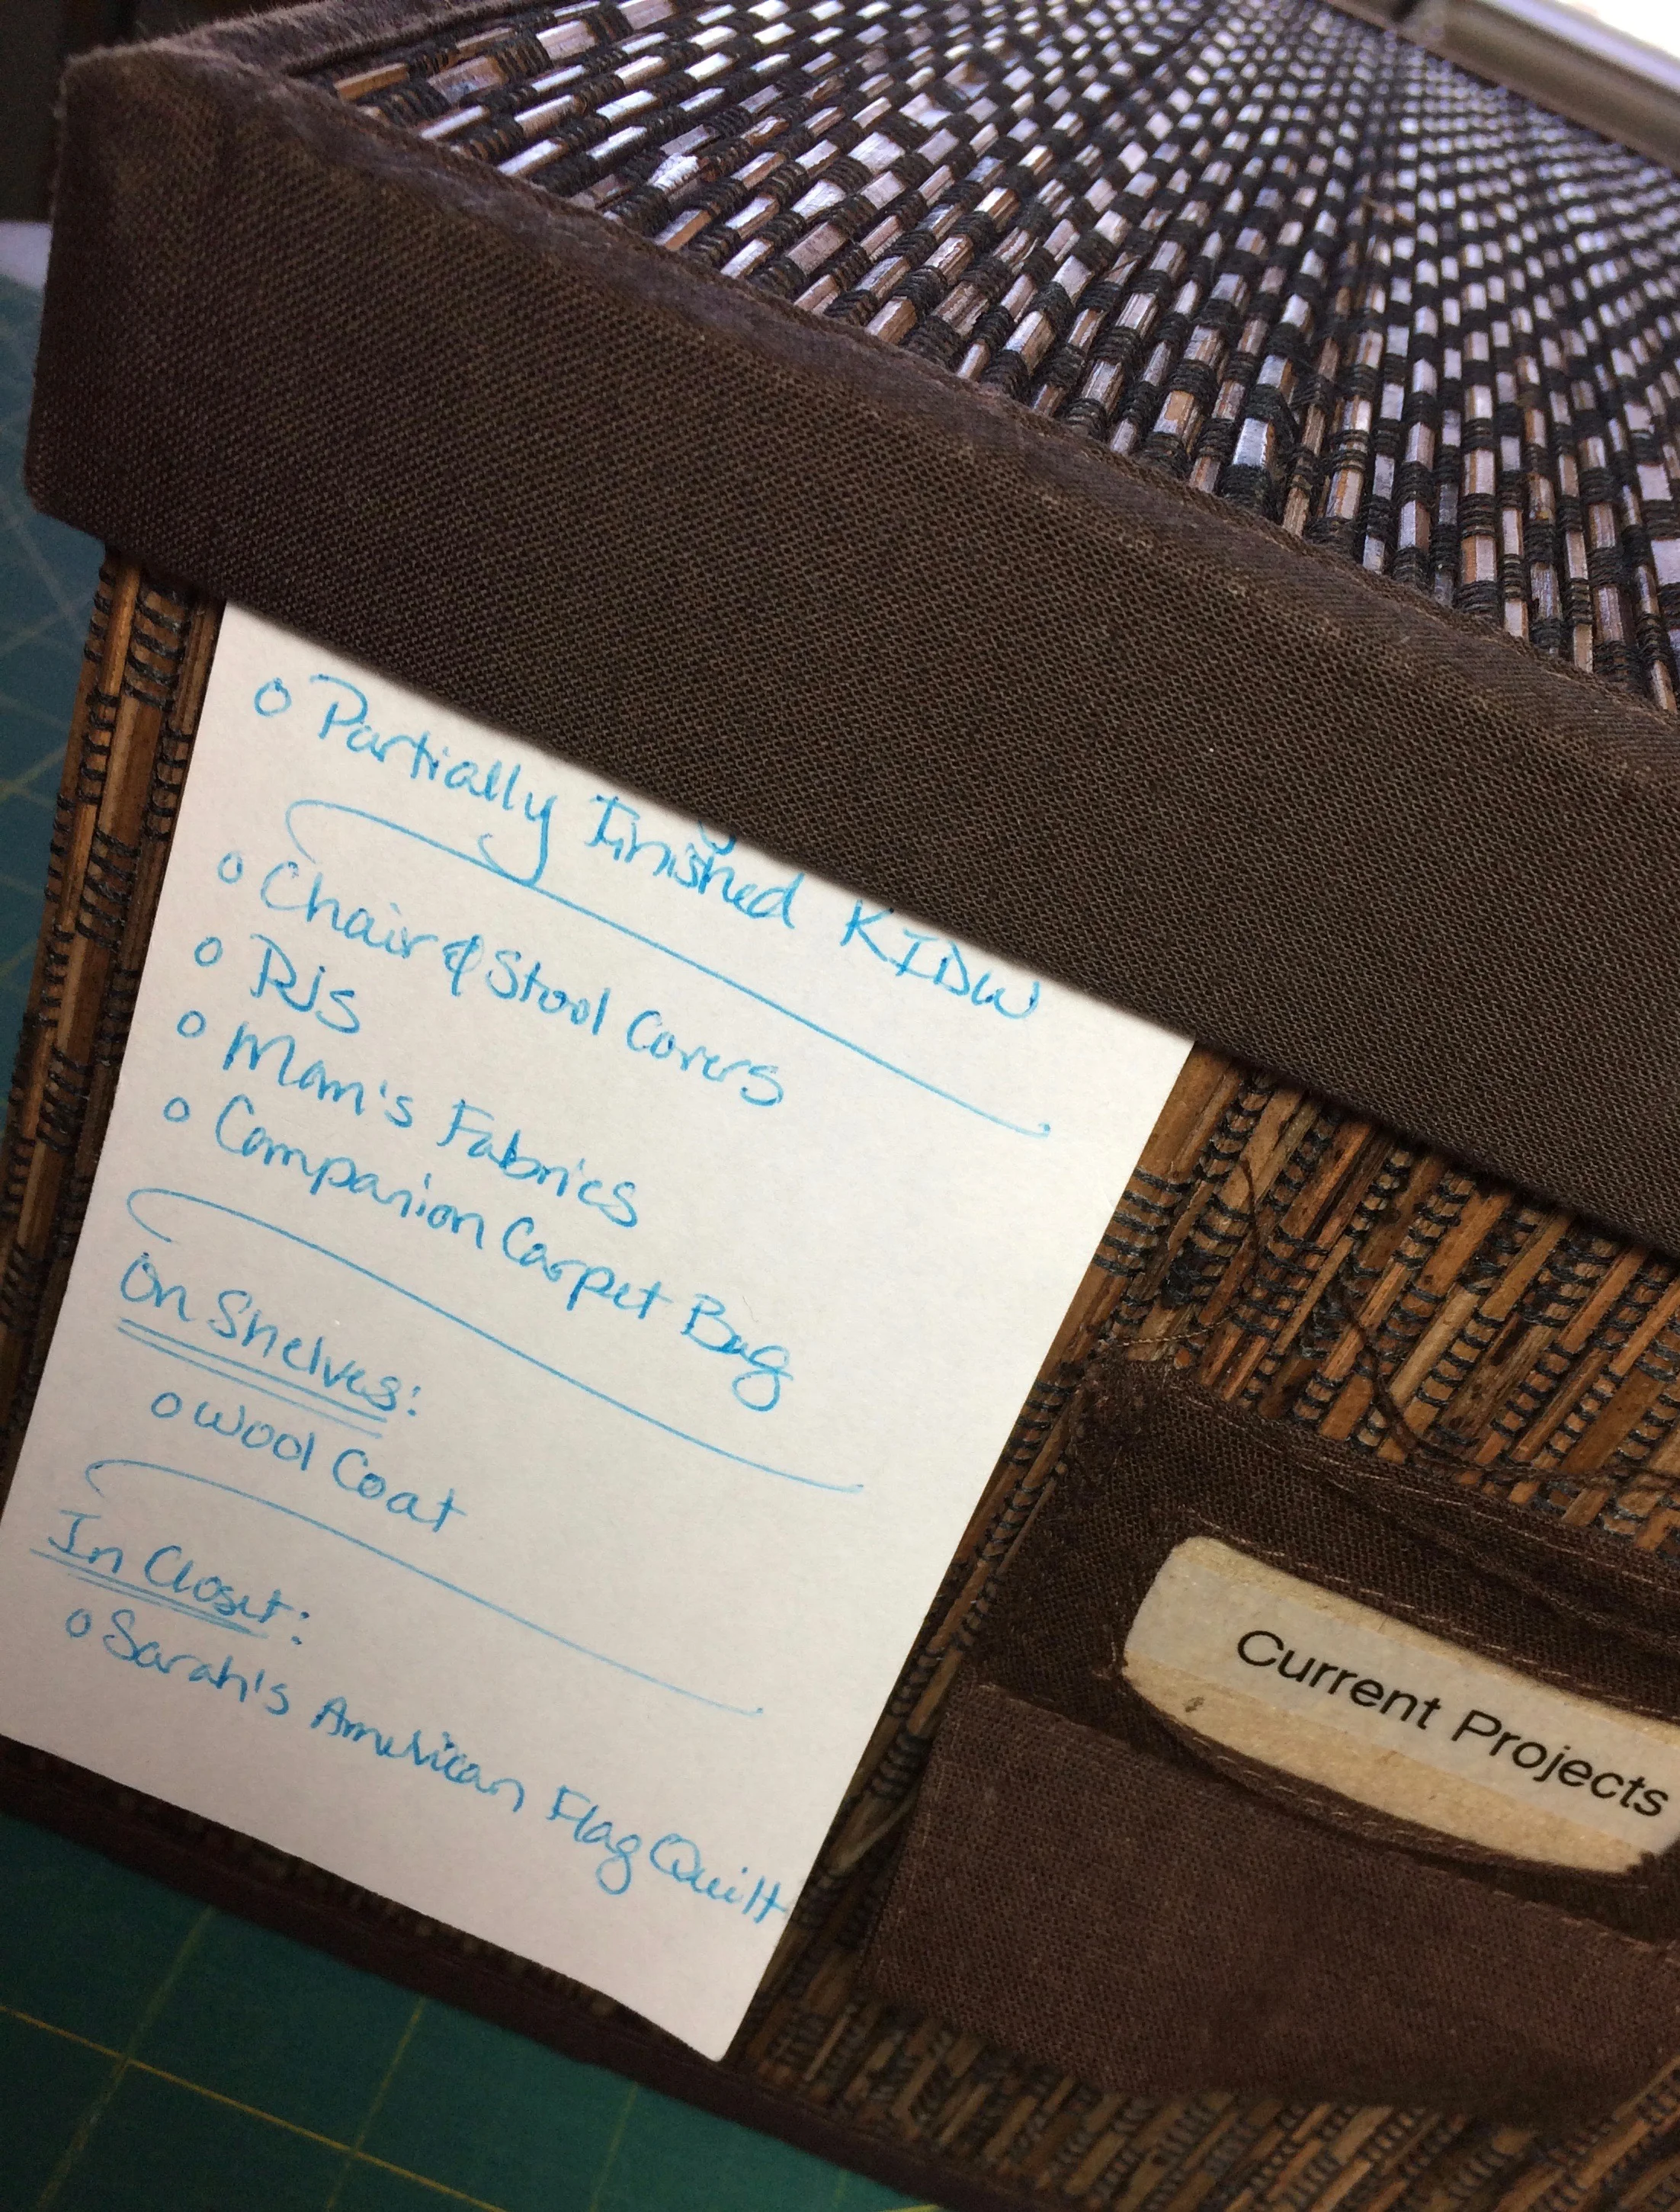 o Partially Finished KIDW
o Chair & Stool Covers
o PJs
o Mom's Fabrics
o Companion Carpet Bag
On Shelves:
o Wool Coat
In Closet:
o Sarah's American Flag Quilt
Current Projects